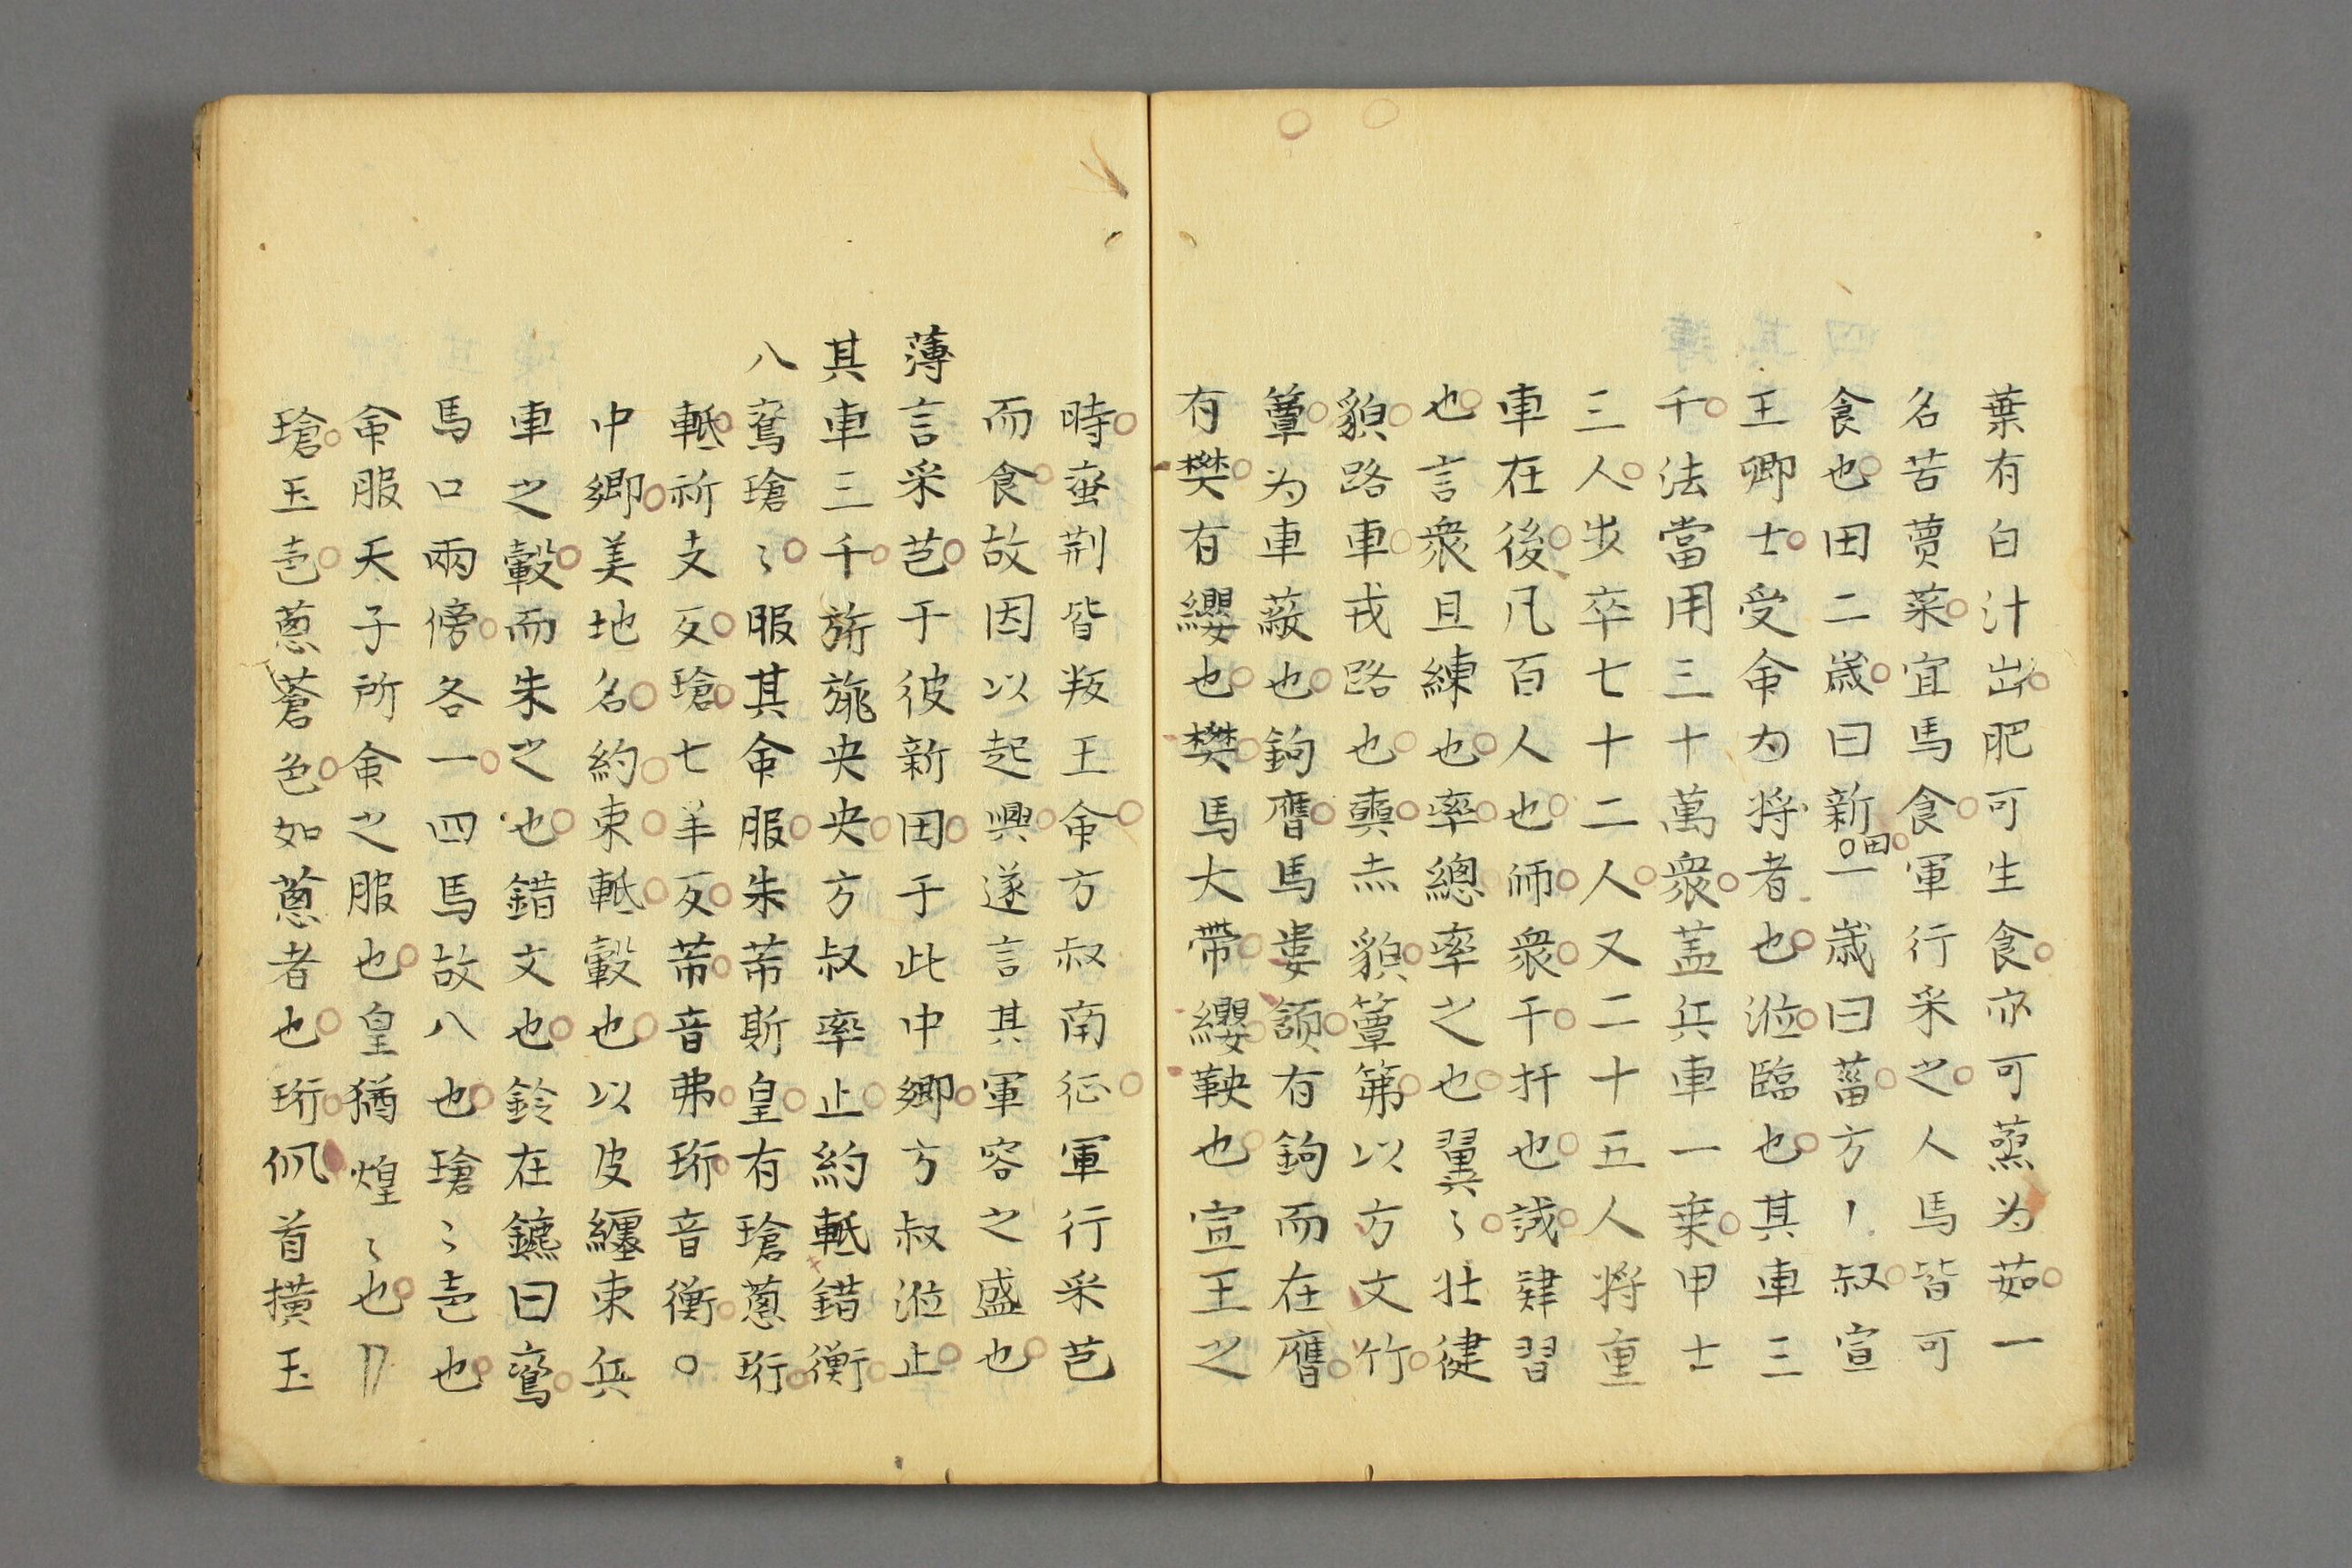 葉有白汁出肥可生食亦可蒸为茹一
名苦蕒菜宜馬食軍行采之人馬皆可
食也田二歳曰新田一歳曰菑方丨叔宣
王卿士受命为将者也涖臨也其車三
千法當用三十萬衆蓋兵車一乗甲士
三人歩卒七十二人又二十五人将重
車在後凡百人也師衆干扞也試肄習
也言衆且練也率總率之也翼〻壮健
貌路車戎路也奭赤貌簟笰以方文竹
簟为車蔽也鉤膺馬婁頷有鉤而在膺
有樊有纓也樊馬大帶纓鞅也宣王之
時蛮荆皆叛王命方叔南征軍行采芑
而食故因以起興遂言其軍容之盛也
薄言采芑于彼新田于此中郷方叔涖止
其車三千旂旐央央方叔率止約軝錯衡
八鸞瑲〻服其命服朱芾斯皇有瑲蔥珩
軝祈支反瑲七羊反芾音弗珩音衡○
中郷美地名約束軝轂也以皮纒束兵
車之轂而朱之也錯文也鈴在鑣曰鸞
馬口兩傍各一四馬故八也瑲〻声也
命服天子所命之服也皇猶煌〻也
瑲玉声蔥蒼色如蔥者也珩佩首横玉